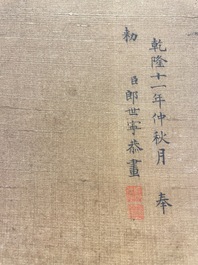 乾隆十一年仲秋月奉
勅
臣郎世寧恭畫